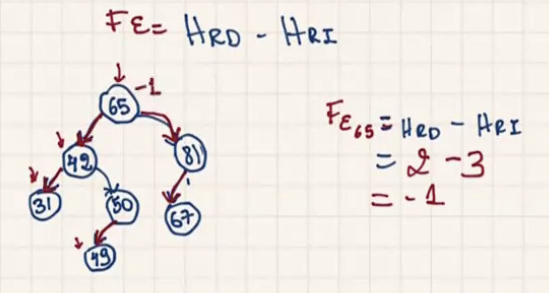 FE= HRD - HRI
65 -1
42 81
31 50 67
49
FE65 = HRD - HRI
= 2 - 3
= - 1